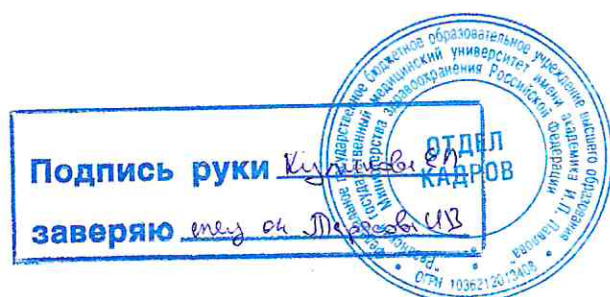 Подпись руки
заверяю
федеральное государственное бюджетное образовательное учреждение высшего образования
государственный медицинский университет имени академика И.П. Павлова
Министерства здравоохранения Российской Федерации
ОТДЕЛ
КАДРОВ
ОГРН 1036212013408